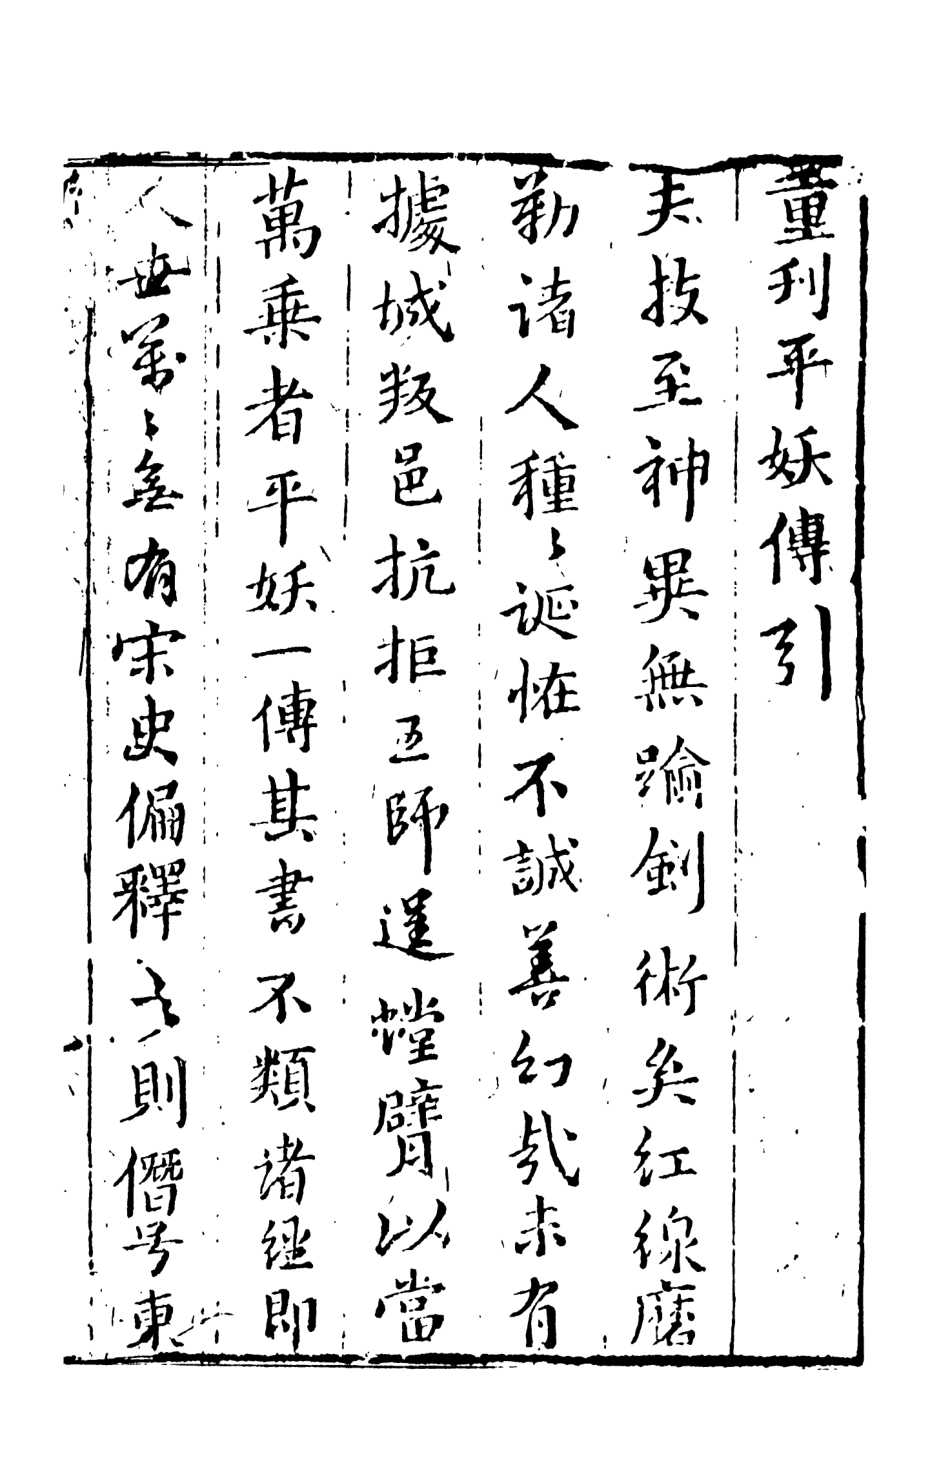 重刊平妖傳引
夫技至神異無踰劍術矣紅線磨
勒諸人種〻誕恠不誠善幻哉未有
據城叛邑抗拒王師逞螳臂以當
萬乗者平妖一傳其書不類諸經即
人世萬〻無有宋史偏釋之則僭号東